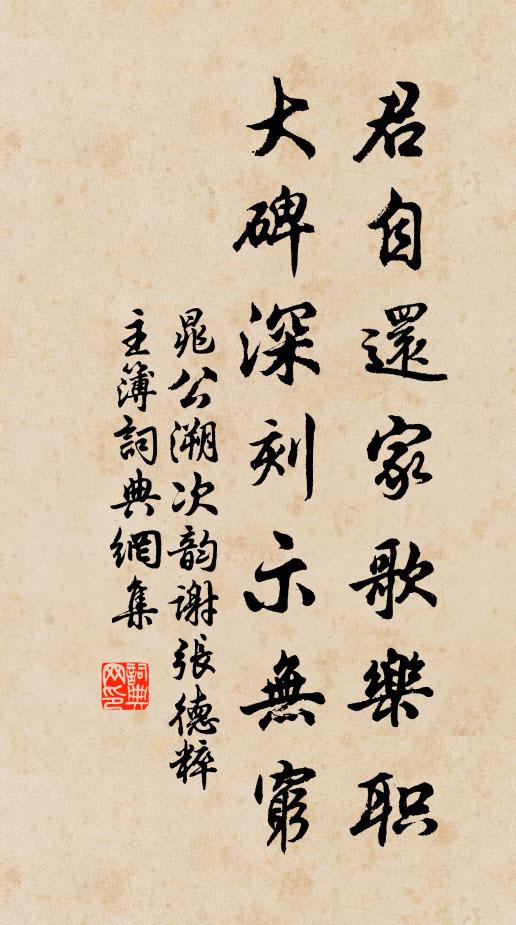 君自還家歌樂职
大碑深刻示無窮
晁公溯次韵謝張德粹
主簿詞典網集
詞典网印